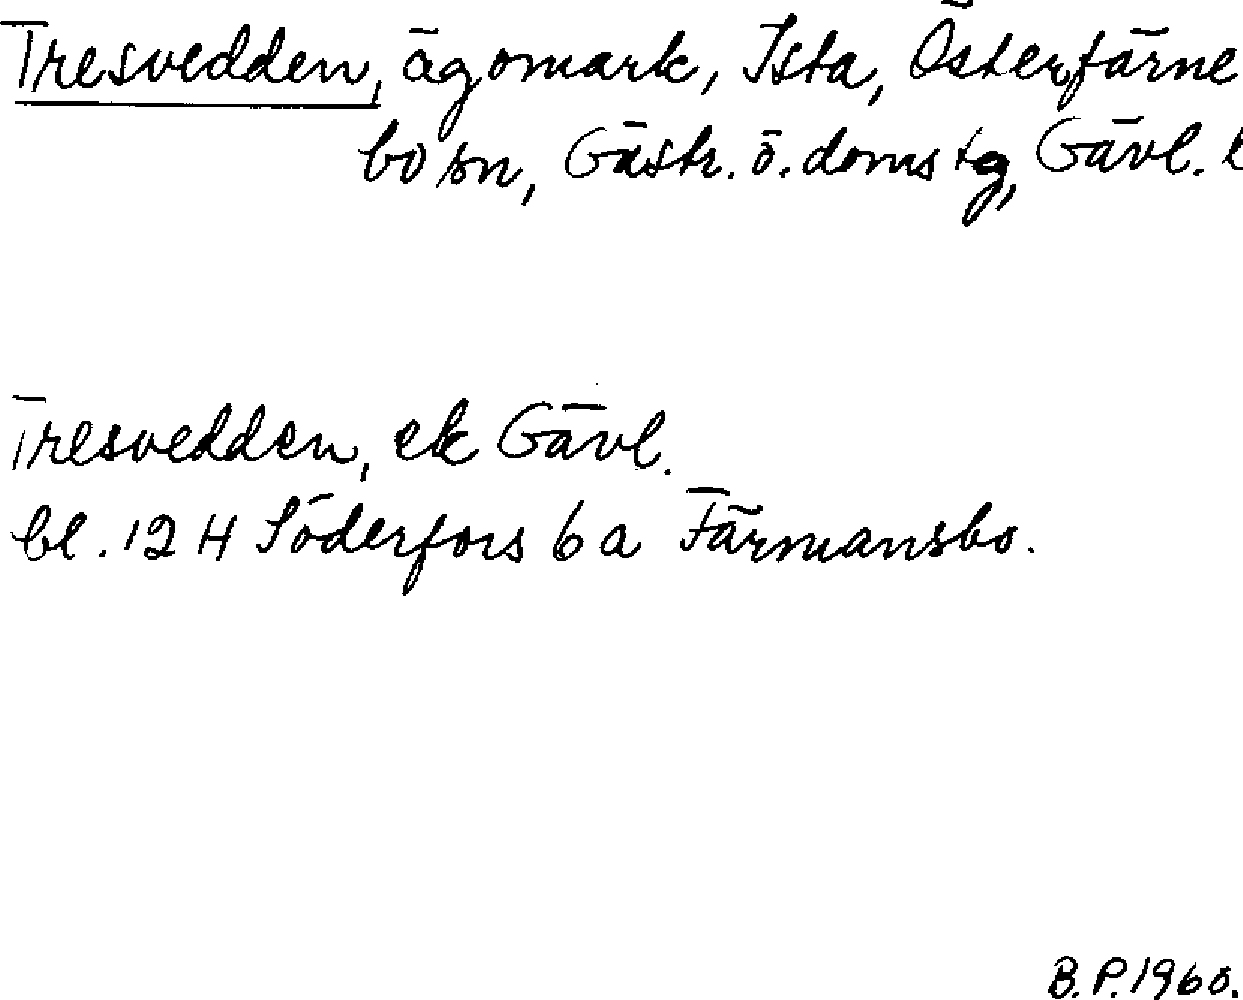 Tresvedden, ägomark, Ista, Österfärne
bo sn, Gästr. ö. domstg, Gävl. l
Tresvedden, ek Gävl.
bl. 12 H Söderfors 6 a Färmansbo.
B. P. 1960.